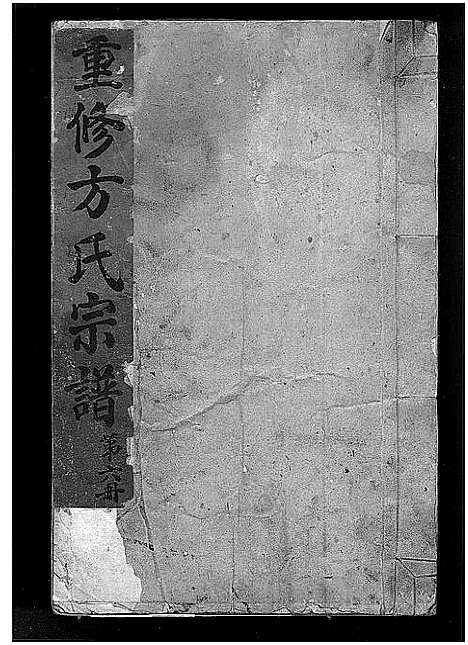 重修方氏宗譜
第六冊